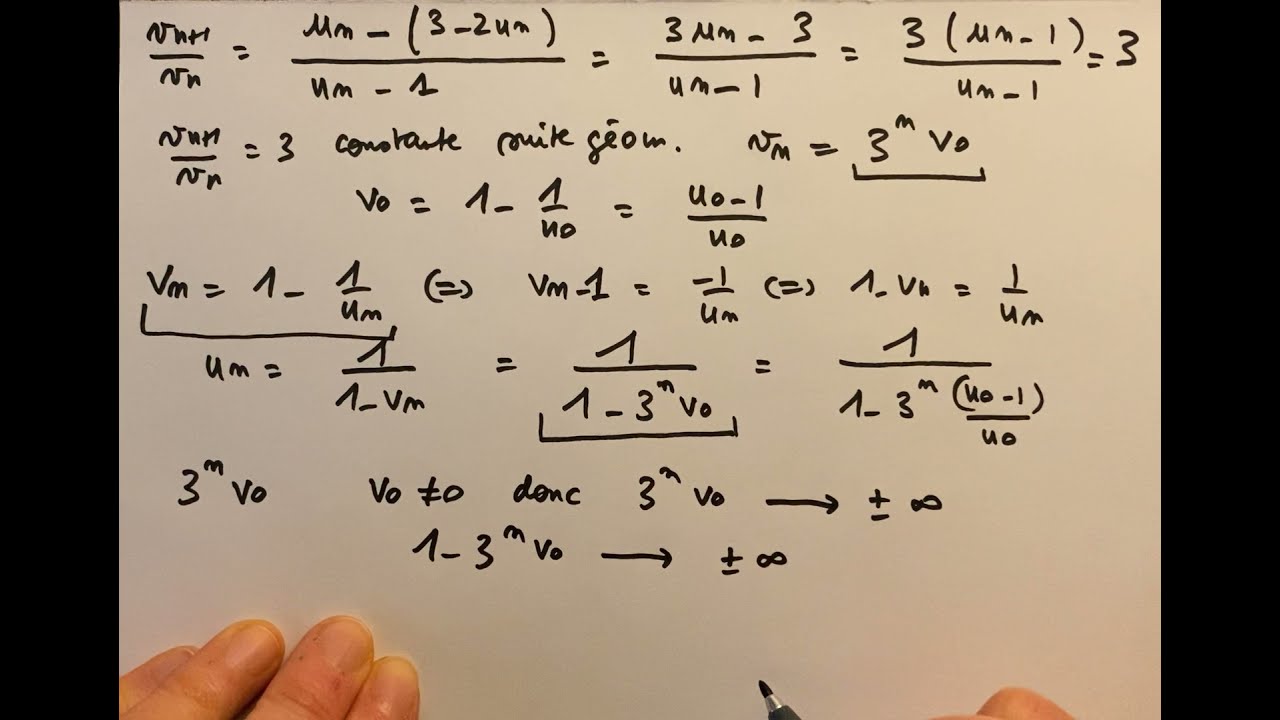 vn+1/vn = un - (3 - 2un)/un - 1 = 3un - 3/un - 1 = 3(un - 1)/un - 1 = 3
vn+1/vn = 3 constante suite géom. vn = 3^n v0
v0 = 1 - 1/u0 = u0 - 1/u0
vn = 1 - 1/un (=) vn - 1 = -1/un (=) 1 - vn = 1/un
un = 1/1 - vn = 1/1 - 3^n v0 = 1/1 - 3^n (u0 - 1)/u0
3^n v0 v0 ≠ 0 donc 3^n v0 → ± ∞
1 - 3^n v0 → ± ∞